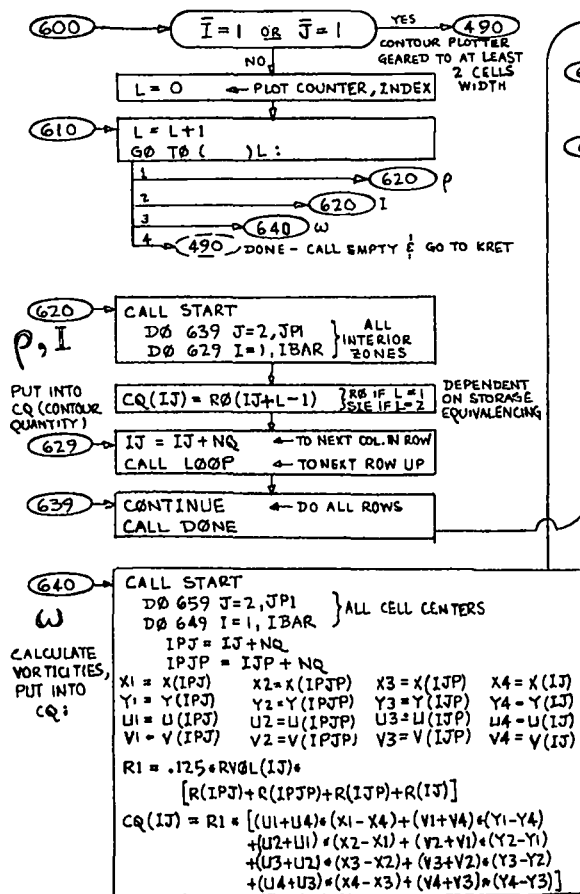 600
Ī=1 OR J̄=1
YES
490
CONTOUR PLOTTER
GEARED TO AT LEAST
2 CELLS
WIDTH
NO
L = 0 ← PLOT COUNTER, INDEX
610
L = L+1
GØ TØ ( )L:
1
620 ρ
2
620 I
3
640 ω
4
490 DONE - CALL EMPTY & GO TO KRET
620
ρ, I
CALL START
DØ 639 J=2, JP1
DØ 629 I=1, IBAR
} ALL
INTERIOR
ZONES
PUT INTO
CQ (CONTOUR
QUANTITY)
CQ(IJ) = RØ(IJ+L-1)
} RØ IF L=1
SIE IF L=2
DEPENDENT
ON STORAGE
EQUIVALENCING
629
IJ = IJ+NQ ← TO NEXT COL. IN ROW
CALL LOOP ← TO NEXT ROW UP
639
CØNTINUE ← DO ALL ROWS
CALL DØNE
640
ω
CALCULATE
VORTICITIES,
PUT INTO
CQ:
CALL START
DØ 659 J=2, JP1
DØ 649 I=1, IBAR
} ALL CELL CENTERS
IPJ = IJ+NQ
IPJP = IJP+NQ
X1 = X(IPJ) X2=X(IPJP) X3=X(IJP) X4=X(IJ)
Y1 = Y(IPJ) Y2=Y(IPJP) Y3=Y(IJP) Y4=Y(IJ)
U1=U(IPJ) U2=U(IPJP) U3=U(IJP) U4=U(IJ)
V1=V(IPJ) V2=V(IPJP) V3=V(IJP) V4=V(IJ)
R1 = .125*RVØL(IJ)*
[R(IPJ)+R(IPJP)+R(IJP)+R(IJ)]
CQ(IJ) = R1 * [(U1+U4)*(X1-X4)+(V1+V4)*(Y1-Y4)
+(U2+U1)*(X2-X1)+(V2+V1)*(Y2-Y1)
+(U3+U2)*(X3-X2)+(V3+V2)*(Y3-Y2)
+(U4+U3)*(X4-X3)+(V4+V3)*(Y4-Y3)]